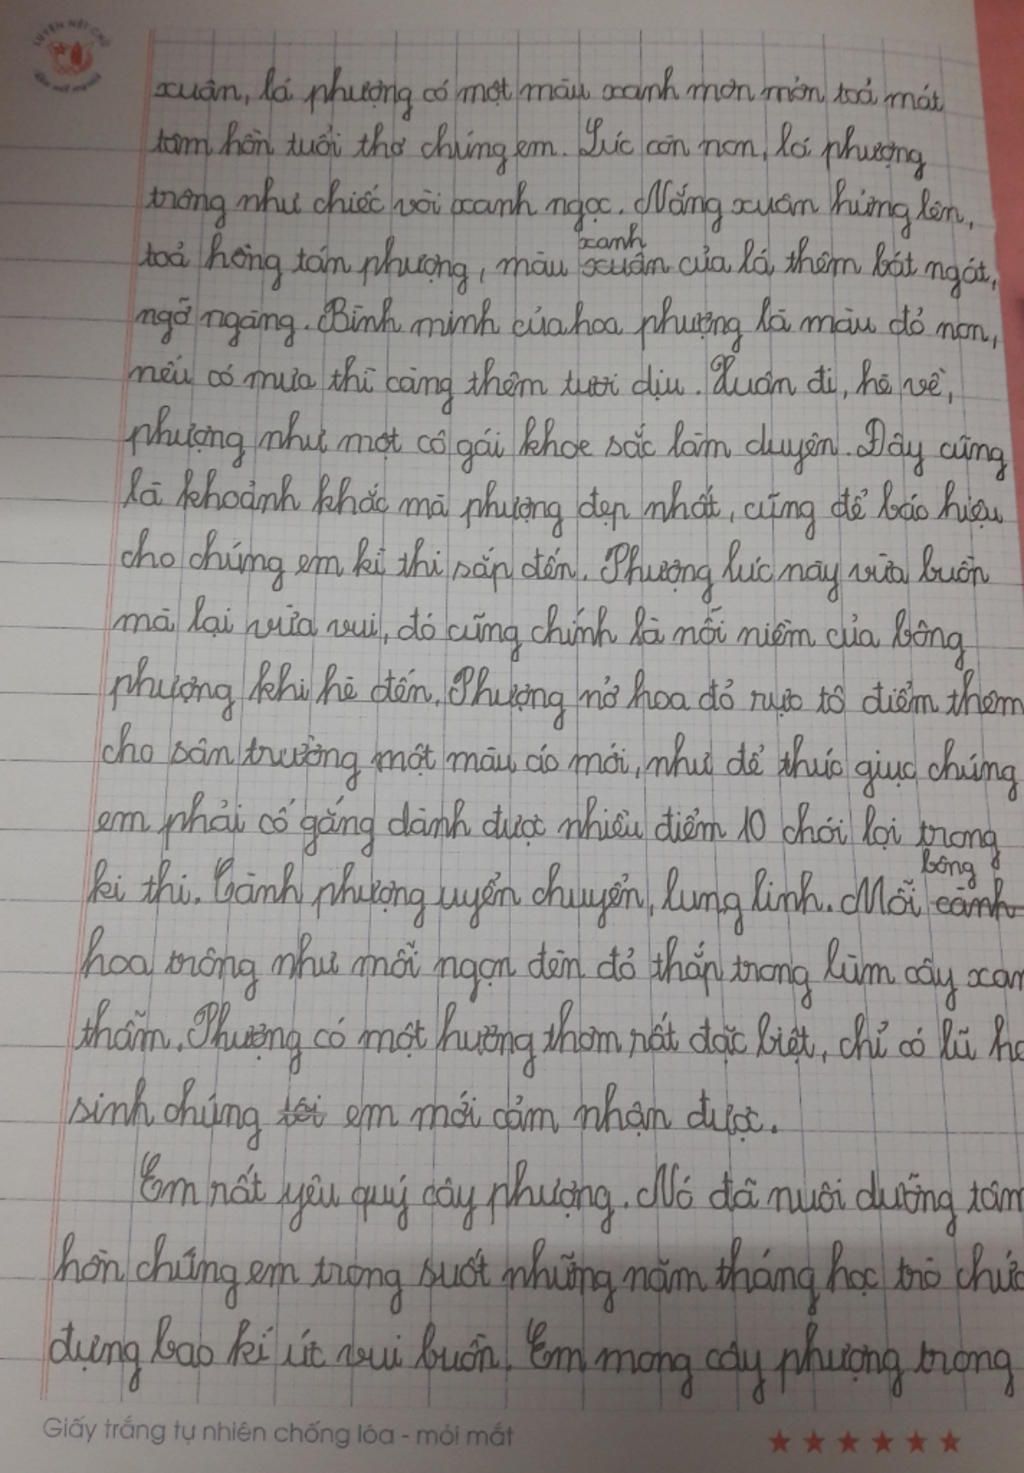 LUYỆN NÉT CHỮ
xuân, lá phượng có một màu xanh mơn mởn toả mát
tâm hồn tuổi thơ chúng em. Lúc còn non, lá phượng
trông như chiếc vòi xanh ngọc. Nắng xuân hứng lên,
xanh
toả hồng tán phượng, màu xuân của lá thêm bát ngát,
ngỡ ngàng. Bình minh của hoa phượng là màu đỏ non,
nếu có mưa thì càng thêm tươi dịu. Xuân đi, hè về,
phượng như một cô gái khoe sắc làm duyên. Đây cũng
là khoảnh khắc mà phượng đẹp nhất, cũng để báo hiệu
cho chúng em kì thi sắp đến. Phượng lúc này vừa buồn
mà lại vừa vui, đó cũng chính là nỗi niềm của bông
phượng khi hè đến. Phượng nở hoa đỏ rực tô điểm thêm
cho sân trường một màu áo mới, như để thúc giục chúng
em phải cố gắng dành được nhiều điểm 10 chói lọi trong
bông
kì thi. Cành phượng uyển chuyển, lung linh. Mỗi cành
hoa trông như mỗi ngọn đèn đỏ thắp trong lùm cây xan
thẫm. Phượng có một hường thơm rất đặc biệt, chỉ có lũ họ
sinh chúng tôi em mới cảm nhận được.
Em rất yêu quý cây phượng. Nó đã nuôi dưỡng tâm
hồn chúng em trong suốt những năm tháng học trò chứ
đựng bao kí ức vui buồn. Em mong cây phượng trong
Giấy trắng tự nhiên chống lóa - mỏi mắt